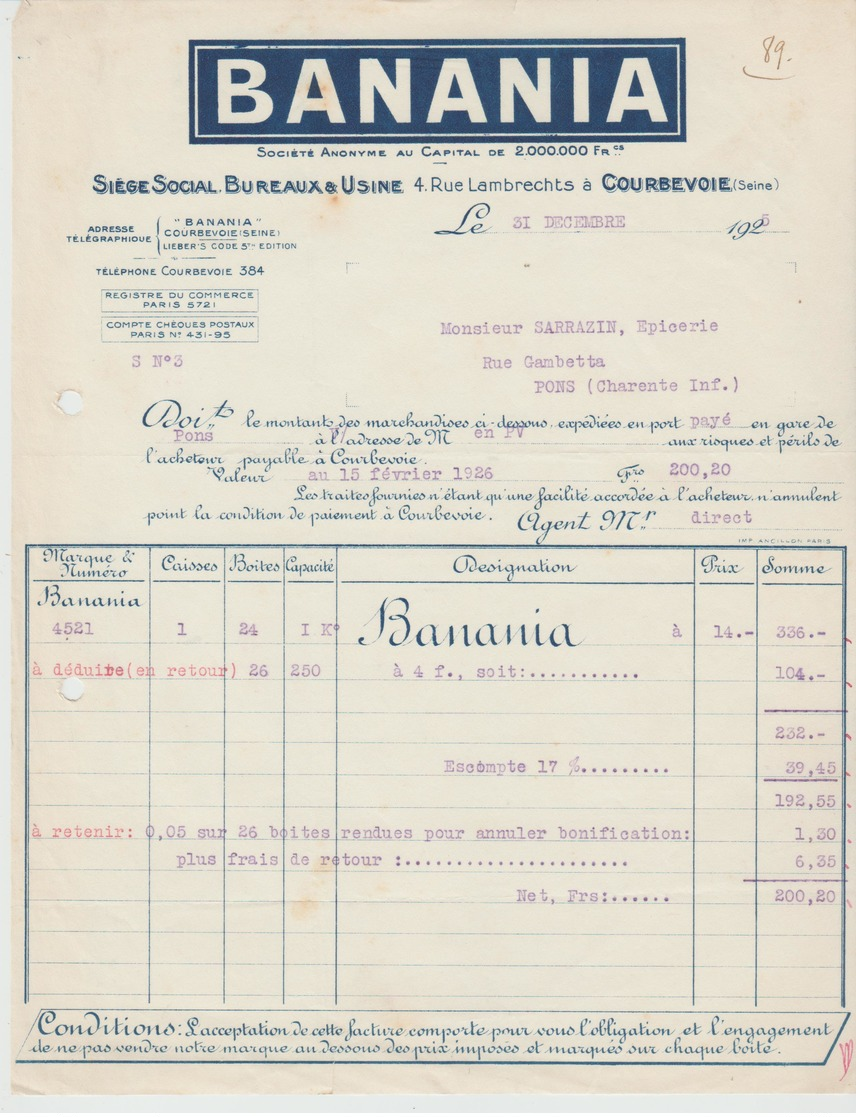 89.
BANANIA
SOCIÉTÉ ANONYME AU CAPITAL DE 2.000.000 FRCS
SIÈGE SOCIAL, BUREAUX & USINE 4. Rue Lambrechts à COURBEVOIE (Seine)
ADRESSE TÉLÉGRAPHIQUE
"BANANIA"
COURBEVOIE (SEINE)
LIEBER'S CODE 5TH EDITION
Le 31 DECEMBRE 1925
TÉLÉPHONE COURBEVOIE 384
REGISTRE DU COMMERCE
PARIS 5721
COMPTE CHÈQUES POSTAUX
PARIS N° 431-95
Monsieur SARRAZIN, Epicerie
S N°3
Rue Gambetta
PONS (Charente Inf.)
Doit le montant des marchandises ci-dessous, expédiées en port payé en gare de
Pons à l'adresse de M en PV aux risques et périls de
l'acheteur payable à Courbevoie.
Valeur au 15 février 1926 Frs 200,20
Les traites fournies n'étant qu'une facilité accordée à l'acheteur n'annulent
point la condition de paiement à Courbevoie. Agent Mr direct
IMP. ANCILLON PARIS
Marque & Numéro Caisses Boîtes Capacité Designation Prix Somme
Banania
4521 1 24 I K° Banania à 14.- 336.-
à déduire (en retour) 26 250 à 4 f., soit:........... 104.-
232.-
Escompte 17 %......... 39,45
192,55
à retenir: 0,05 sur 26 boites rendues pour annuler bonification: 1,30
plus frais de retour :....................... 6,35
Net, Frs:...... 200,20
Conditions: L'acceptation de cette facture comporte pour vous l'obligation et l'engagement
de ne pas vendre notre marque au dessous des prix imposés et marqués sur chaque boîte.